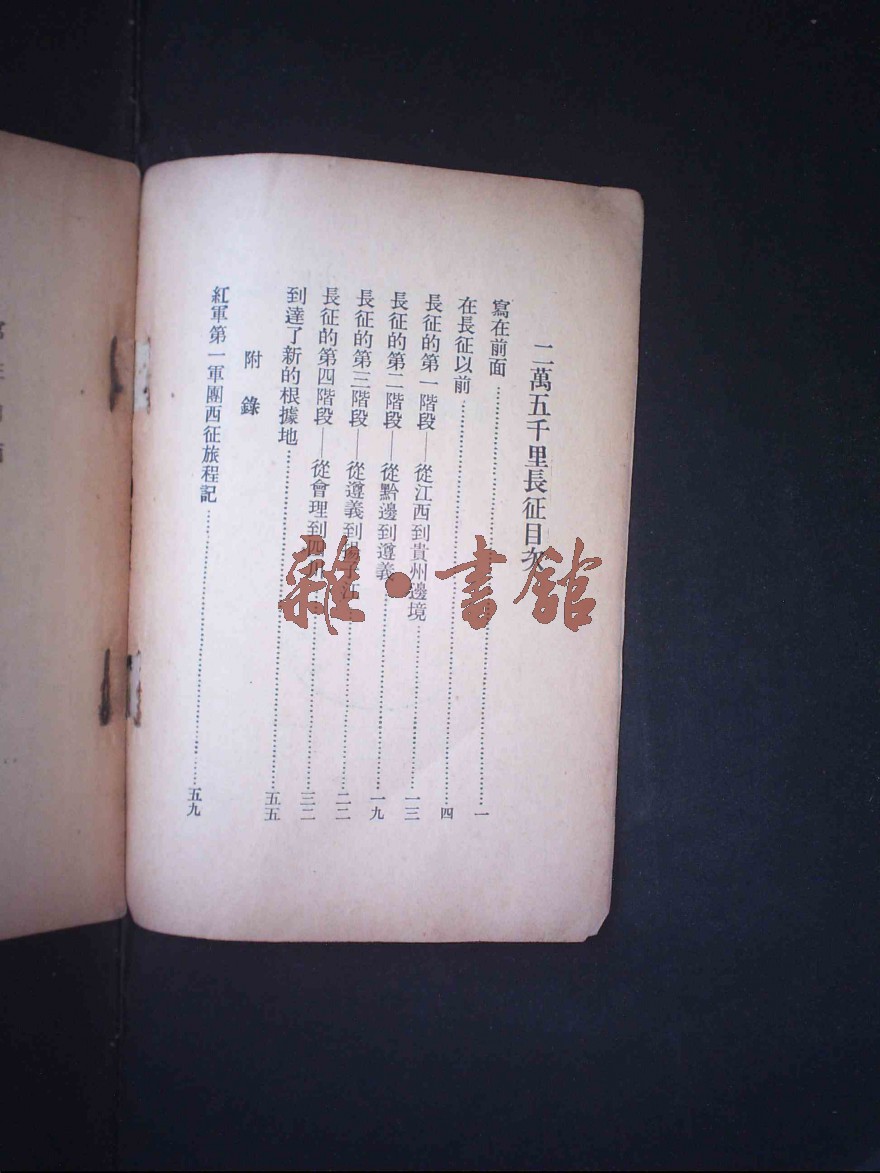 二萬五千里長征目次
寫在前面……一
在長征以前……四
長征的第一階段——從江西到貴州邊境……一三
長征的第二階段——從黔邊到遵義……一九
長征的第三階段——從遵義到揚子江……二二
長征的第四階段——從會理到四川……三二
到達了新的根據地……五五
附錄
紅軍第一軍團西征旅程記……五九
雜·書館